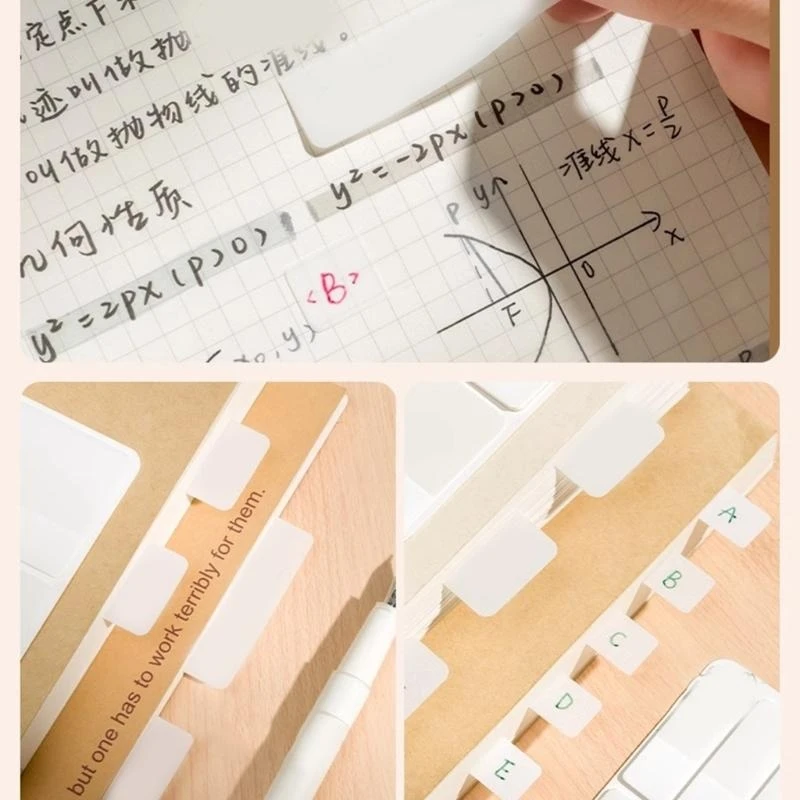 定点F
迹叫做抛
叫做抛物线的准线。
几何性质
y²=2px(p>0)
y²=-2px(p>0)
准线x=p/2
P
y
x
0
F
<B>
x₀,y)
but one has to work terribly for them.
A
B
C
D
E